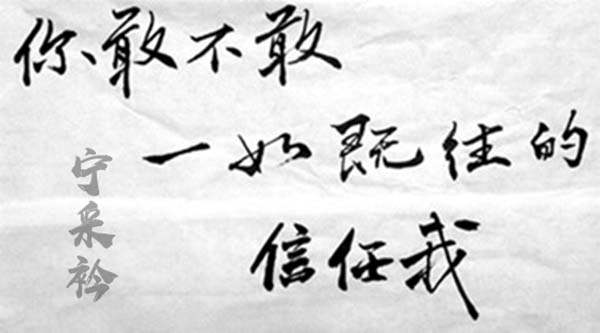 你敢不敢
一如既往的
信任我
宁采衿